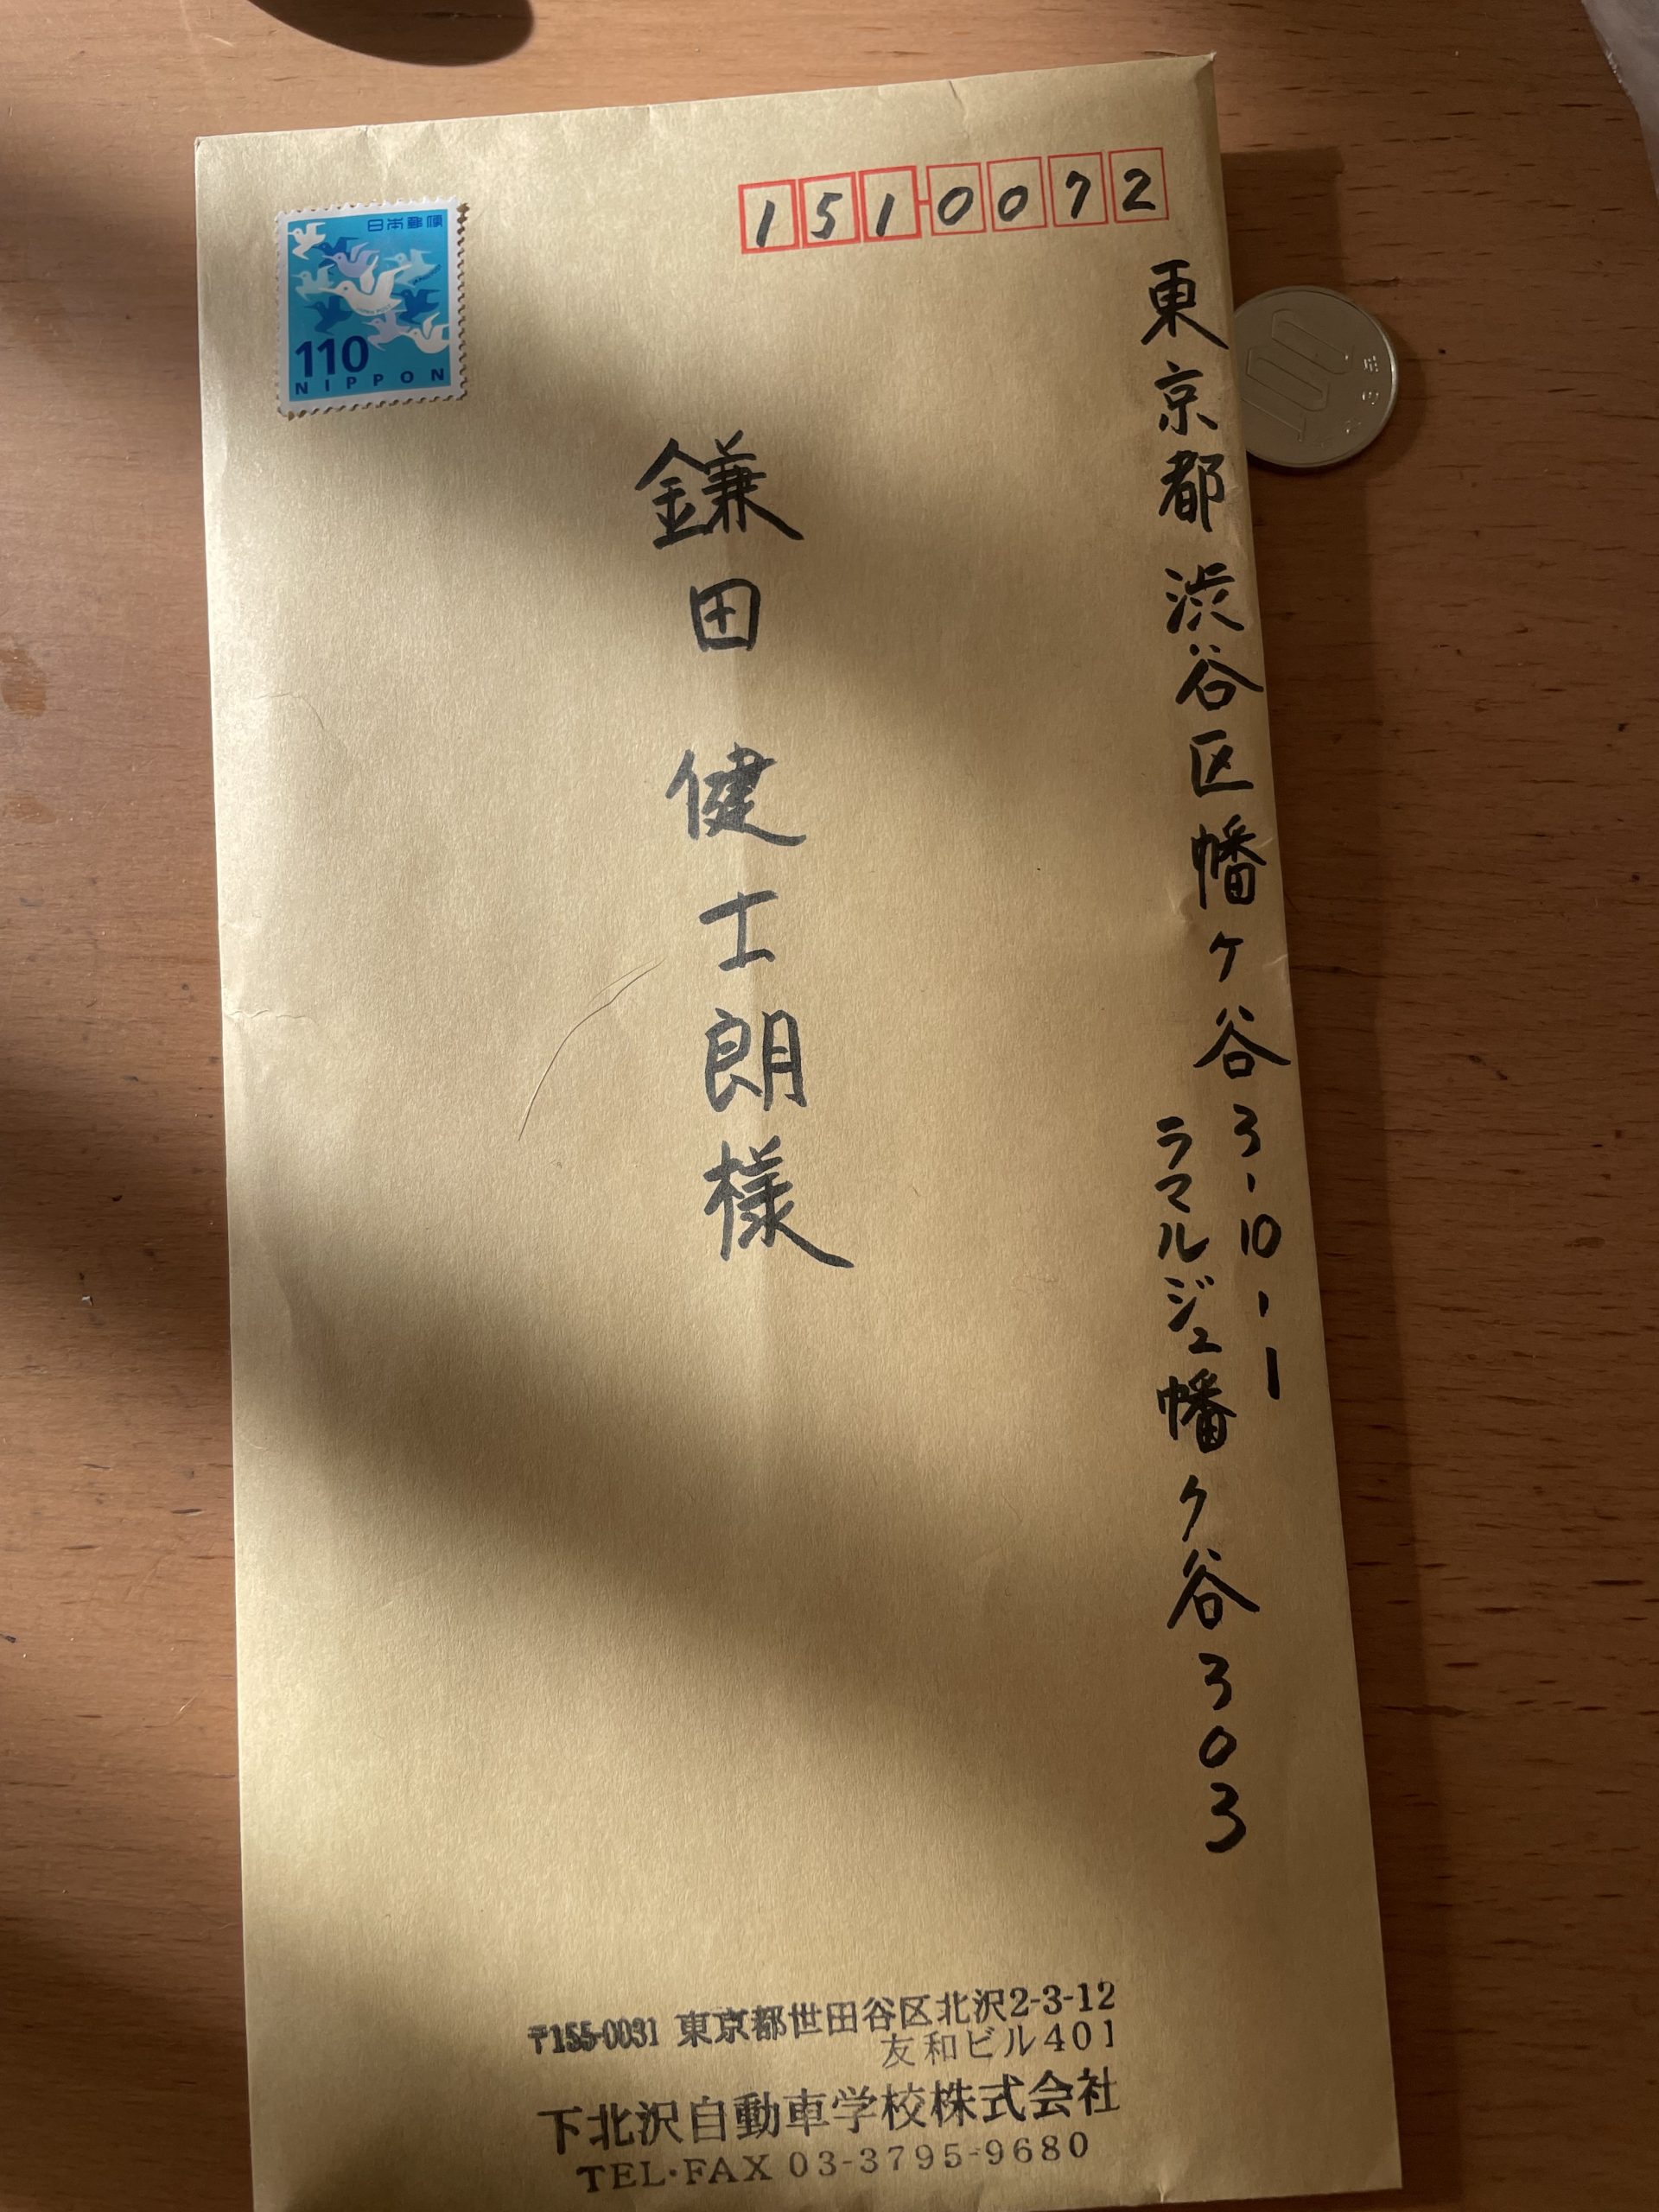 日本郵便
110
NIPPON
1510072
東京都渋谷区幡ヶ谷3-10-1
ラマルジュ幡ヶ谷303
鎌田健士朗様
〒155-0031 東京都世田谷区北沢2-3-12
友和ビル401
下北沢自動車学校株式会社
TEL・FAX 03-3795-9680
100